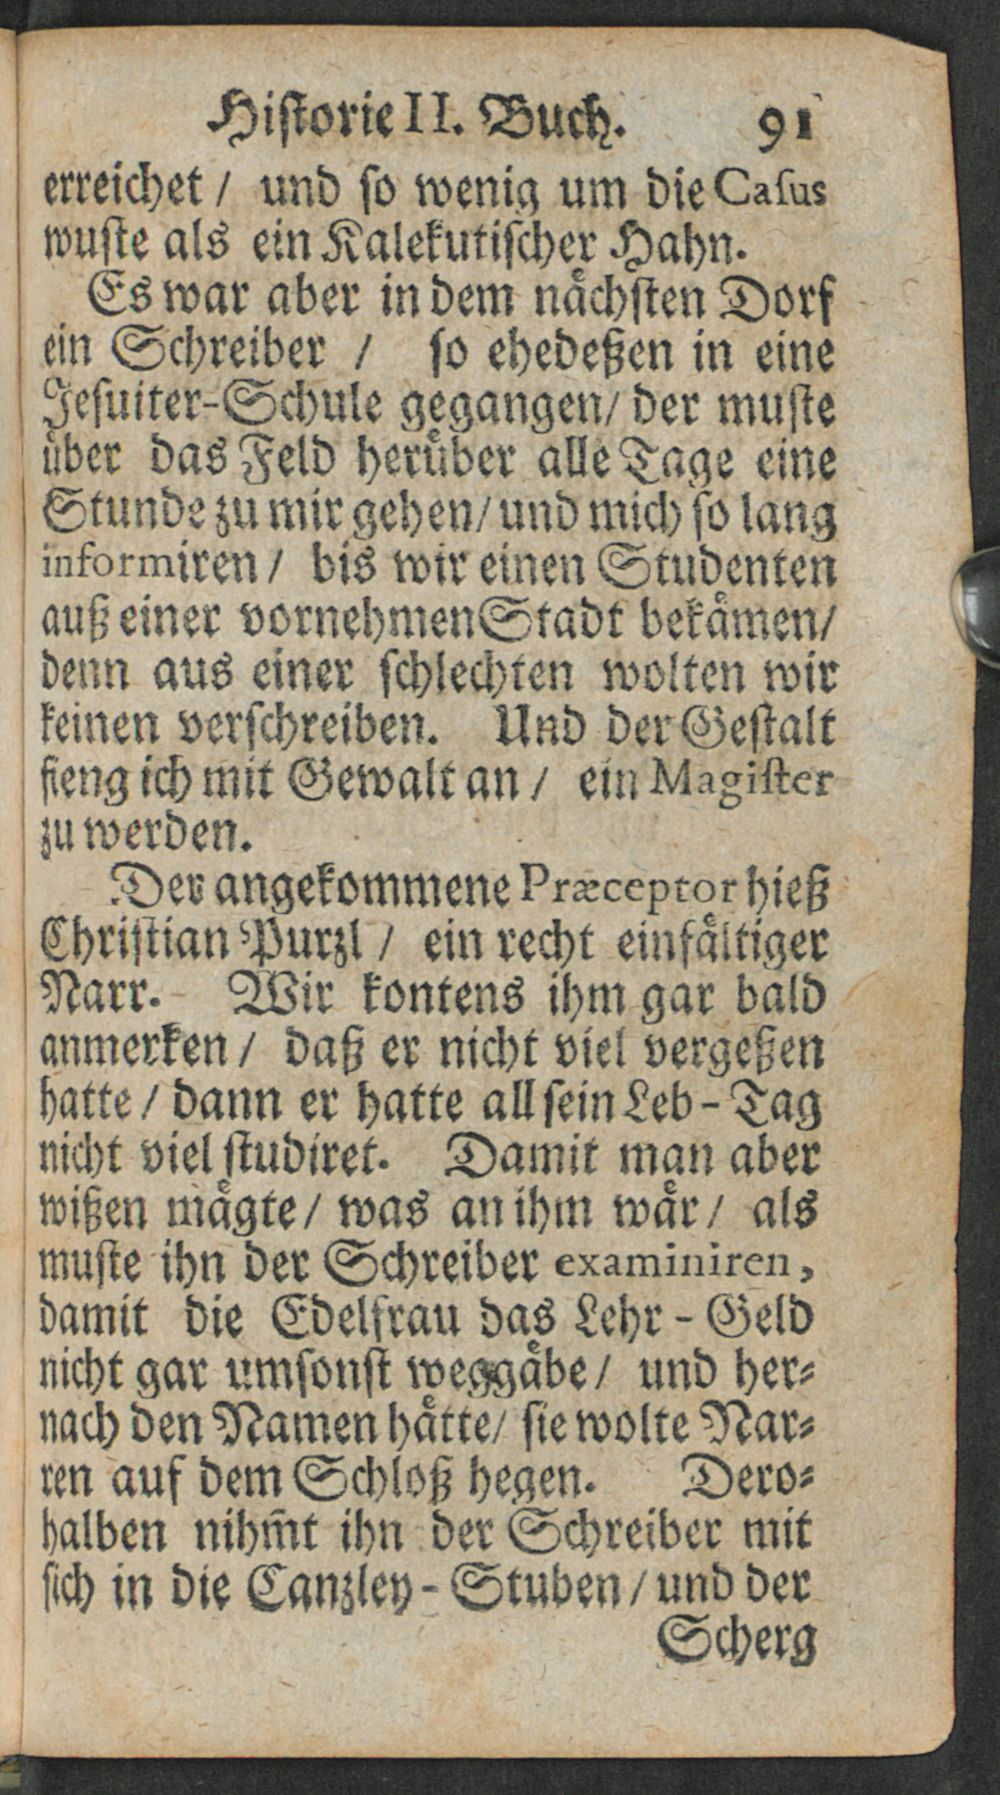 Hiſtorie II. Buch. 91
erreichet / und ſo wenig um die Caſus
wuſte als ein Kalekutiſcher Hahn.
Es war aber in dem nåchſten Dorf
ein Schreiber / ſo ehedeßen in eine
Jeſuiter-Schule gegangen / der muſte
uͤber das Feld heruͤber alle Tage eine
Stunde zu mir gehen / und mich ſo lang
informiren / bis wir einen Studenten
auß einer vornehmen Stadt bekaͤmen /
denn aus einer ſchlechten wolten wir
keinen verſchreiben. Und der Geſtalt
fieng ich mit Gewalt an / ein Magiſter
zu werden.
Der angekommene Præceptor hieß
Chriſtian Purzl / ein recht einfaͤltiger
Narr. Wir kontens ihm gar bald
anmerken / daß er nicht viel vergeßen
hatte / dann er hatte all ſein Leb-Tag
nicht viel ſtudiret. Damit man aber
wißen maͤgte / was an ihm waͤr / als
muſte ihn der Schreiber examiniren,
damit die Edelfrau das Lehr-Geld
nicht gar umſonſt weggaͤbe / und her⸗
nach den Namen haͤtte / ſie wolte Nar⸗
ren auf dem Schloß hegen. Dero⸗
halben nihm̃t ihn der Schreiber mit
ſich in die Canzley-Stuben / und der
Scherg